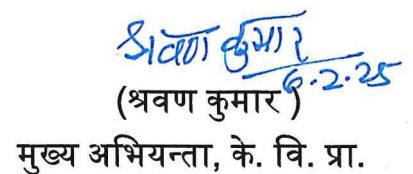 श्रवण कुमार
6.2.25
(श्रवण कुमार)
मुख्य अभियन्ता, के. वि. प्रा.